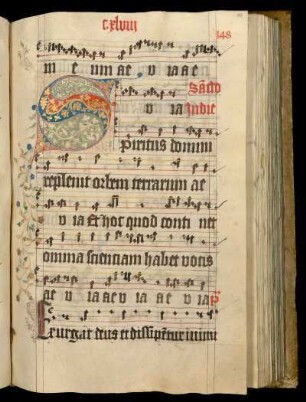 c.xlviij
148
m e um ae v ia ae
Sācto
v ia In die
Spiritus domini
repleuit orbem terrarum ae
v ia Et hoc quod conti net
omnia scientiam habet vocis
ae v ia ae v ia ae v ia p̄
Exurgat deus et dissipētur inimi